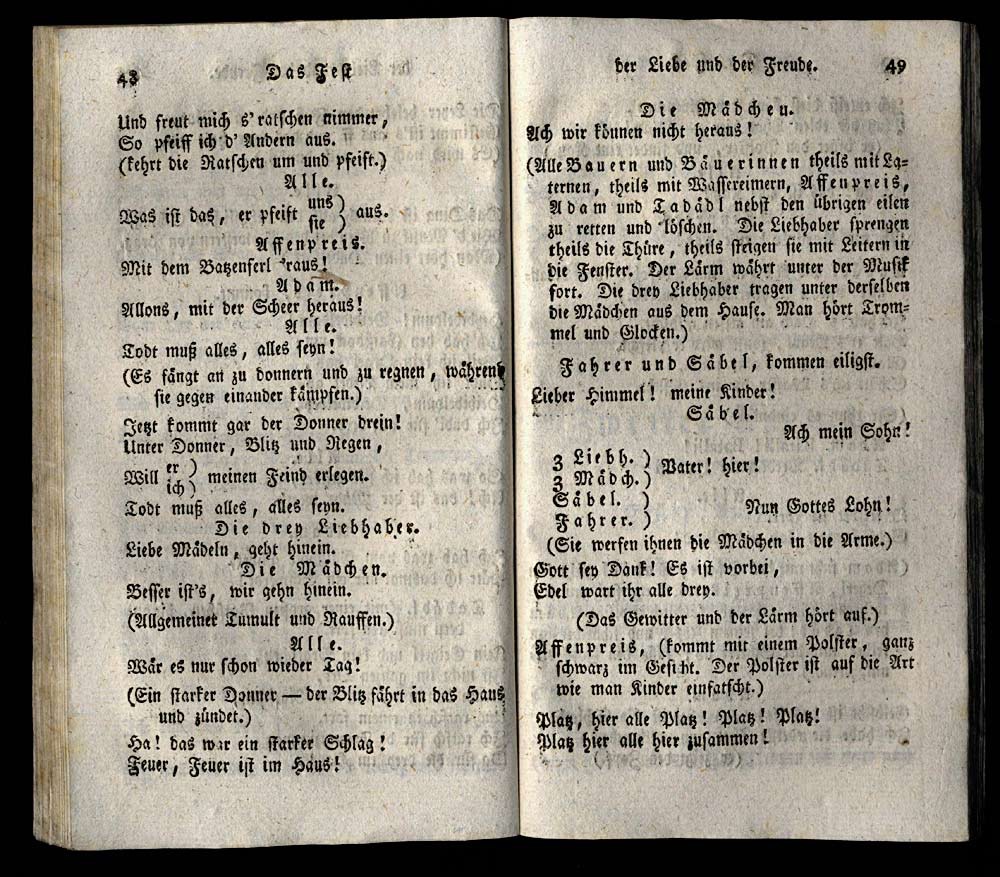 48 Das Fest
Und freut mich s' ratschen nimmer,
So pfeiff ich d' Andern aus.
(kehrt die Ratschen um und pfeift.)
Alle.
Was ist das, er pfeift uns) aus.
sie )
Affenpreis.
Mit dem Batzenferl 'raus!
Adam.
Allons, mit der Scheer heraus!
Alle.
Todt muß alles, alles seyn!
(Es fängt an zu donnern und zu regnen, während
sie gegen einander kämpfen.)
Jetzt kommt gar der Donner drein!
Unter Donner, Blitz und Regen,
Will er ) meinen Feind erlegen.
ich)
Todt muß alles, alles seyn.
Die drey Liebhaber.
Liebe Mädeln, geht hinein.
Die Mädchen.
Besser ist's, wir gehn hinein.
(Allgemeiner Tumult und Rauffen.)
Alle.
Wär es nur schon wieder Tag!
(Ein starker Donner — der Blitz fährt in das Haus
und zündet.)
Ha! das war ein starker Schlag!
Feuer, Feuer ist im Haus!
der Liebe und der Freude. 49
Die Mädchen.
Ach wir können nicht heraus!
(Alle Bauern und Bäuerinnen theils mit La=
ternen, theils mit Wassereimern, Affenpreis,
Adam und Tadädl nebst den übrigen eilen
zu retten und löschen. Die Liebhaber sprengen
theils die Thüre, theils steigen sie mit Leitern in
die Fenster. Der Lärm währt unter der Musik
fort. Die drey Liebhaber tragen unter derselben
die Mädchen aus dem Hause. Man hört Trom=
mel und Glocken.)
Fahrer und Säbel, kommen eiligst.
Lieber Himmel! meine Kinder!
Säbel.
Ach mein Sohn!
3 Liebh. ) Vater! hier!
3 Mädch.)
Säbel. ) Nun Gottes Lohn!
Fahrer. )
(Sie werfen ihnen die Mädchen in die Arme.)
Gott sey Dank! Es ist vorbei,
Edel wart ihr alle drey.
(Das Gewitter und der Lärm hört auf.)
Affenpreis, (kommt mit einem Polster, ganz
schwarz im Gesicht. Der Polster ist auf die Art
wie man Kinder einfatscht.)
Platz, hier alle Platz! Platz! Platz!
Platz hier alle hier zusammen!